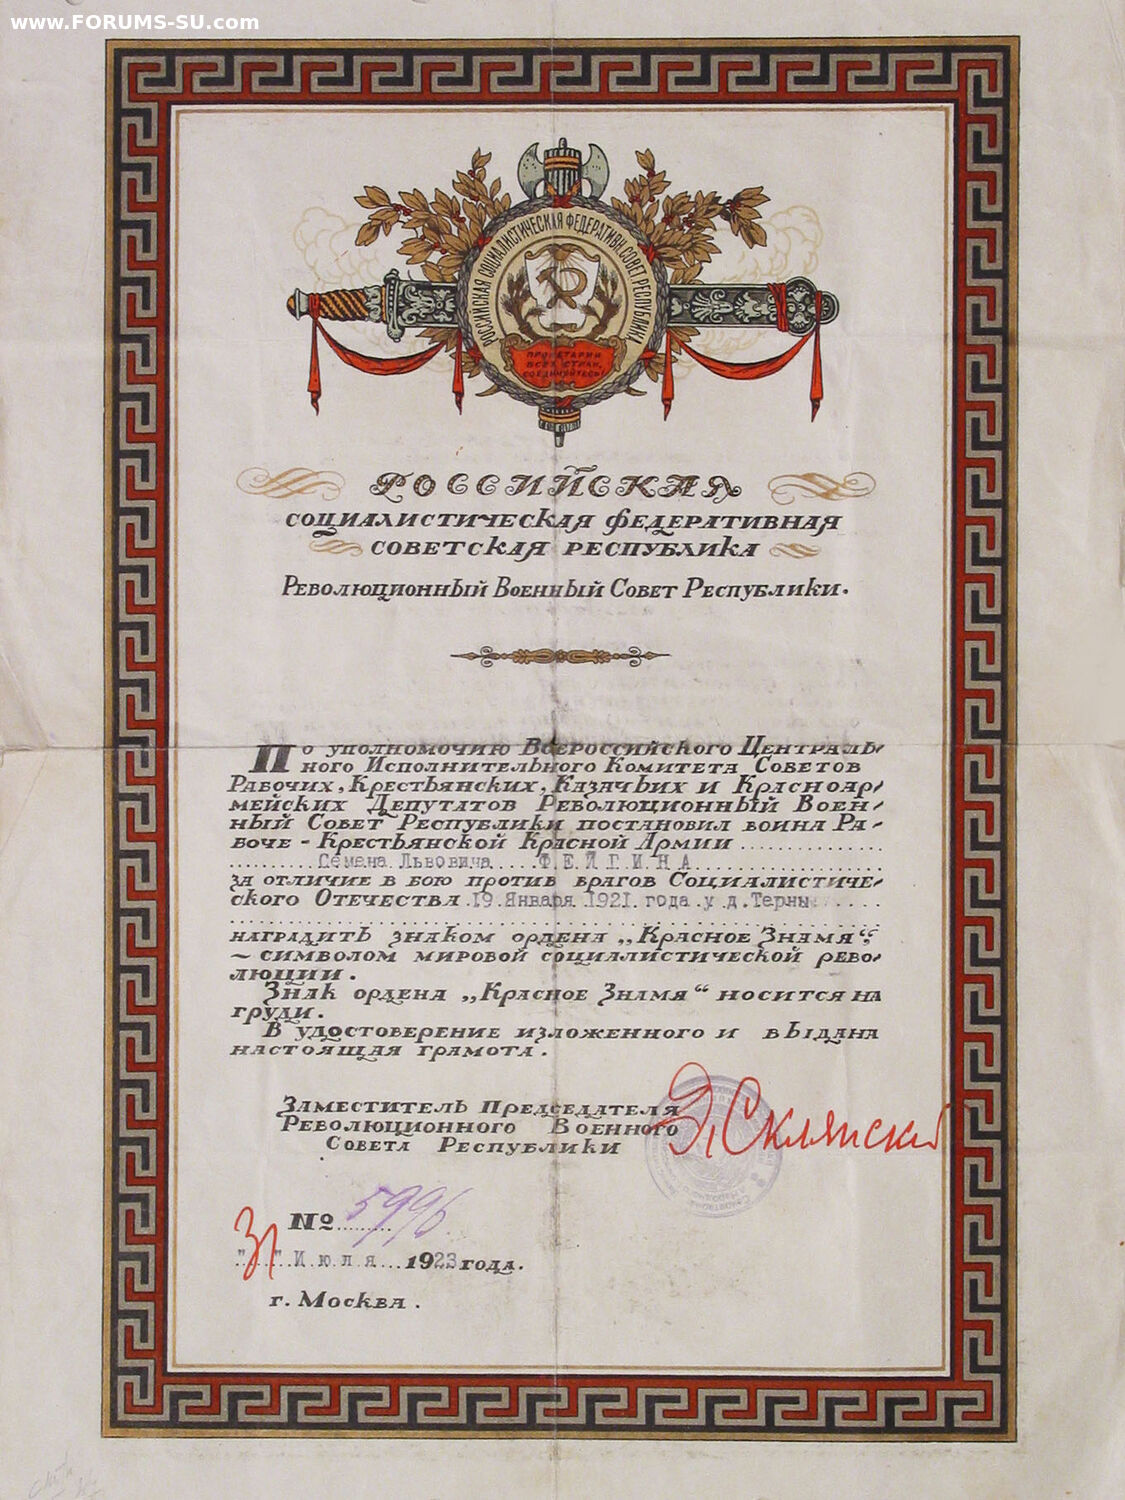 www.FORUMS-SU.com
РОССИЙСКАЯ СОЦИАЛИСТИЧЕСКАЯ ФЕДЕРАТИВН. СОВЕТ. РЕСПУБЛИКА
ПРОЛЕТАРИИ
ВСЕХ СТРАН,
СОЕДИНЯЙТЕСЬ
РОССИЙСКАЯ
СОЦИАЛИСТИЧЕСКАЯ ФЕДЕРАТИВНАЯ
СОВЕТСКАЯ РЕСПУБЛИКА
Революционный Военный Совет Республики.
По уполномочию Всероссийского Централь-
ного Исполнительного Комитета Советов
Рабочих, Крестьянских, Казачьих и Красноар-
мейских Депутатов Революционный Воен-
ный Совет Республики постановил воина Ра-
боче-Крестьянской Красной Армии
Семена Львовича ФЕЙГИНА
за отличие в бою против врагов Социалистиче-
ского Отечества 19 Января 1921 года у д. Терны
наградить знаком ордена „Красное Знамя“,
~ символом мировой социалистической рево-
люции.
Знак ордена „Красное Знамя“ носится на
груди.
В удостоверение изложенного и выдана
настоящая грамота.
Заместитель Председателя
Революционного Военного
Совета Республики
Э. Склянский
№ 5996
"31" Июля 1923 года.
г. Москва.